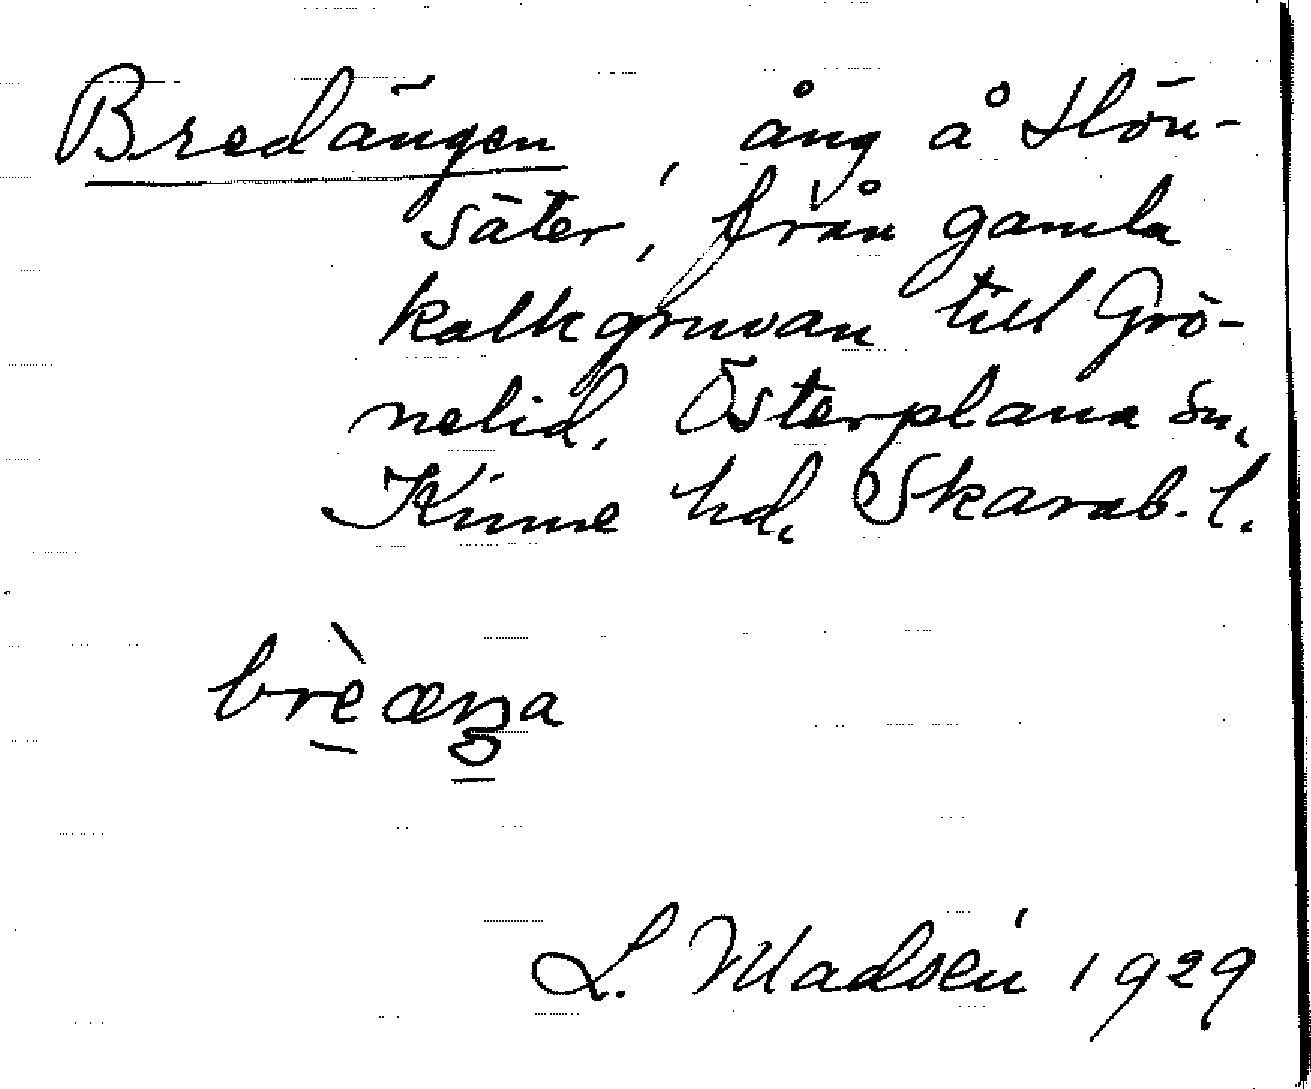 Bredängen, äng å Hön-
säter, från gamla
kalkgruvan till Grö-
nelid. Österplana sn,
Kinne hd, Skarab. l.
L. Madsén 1929